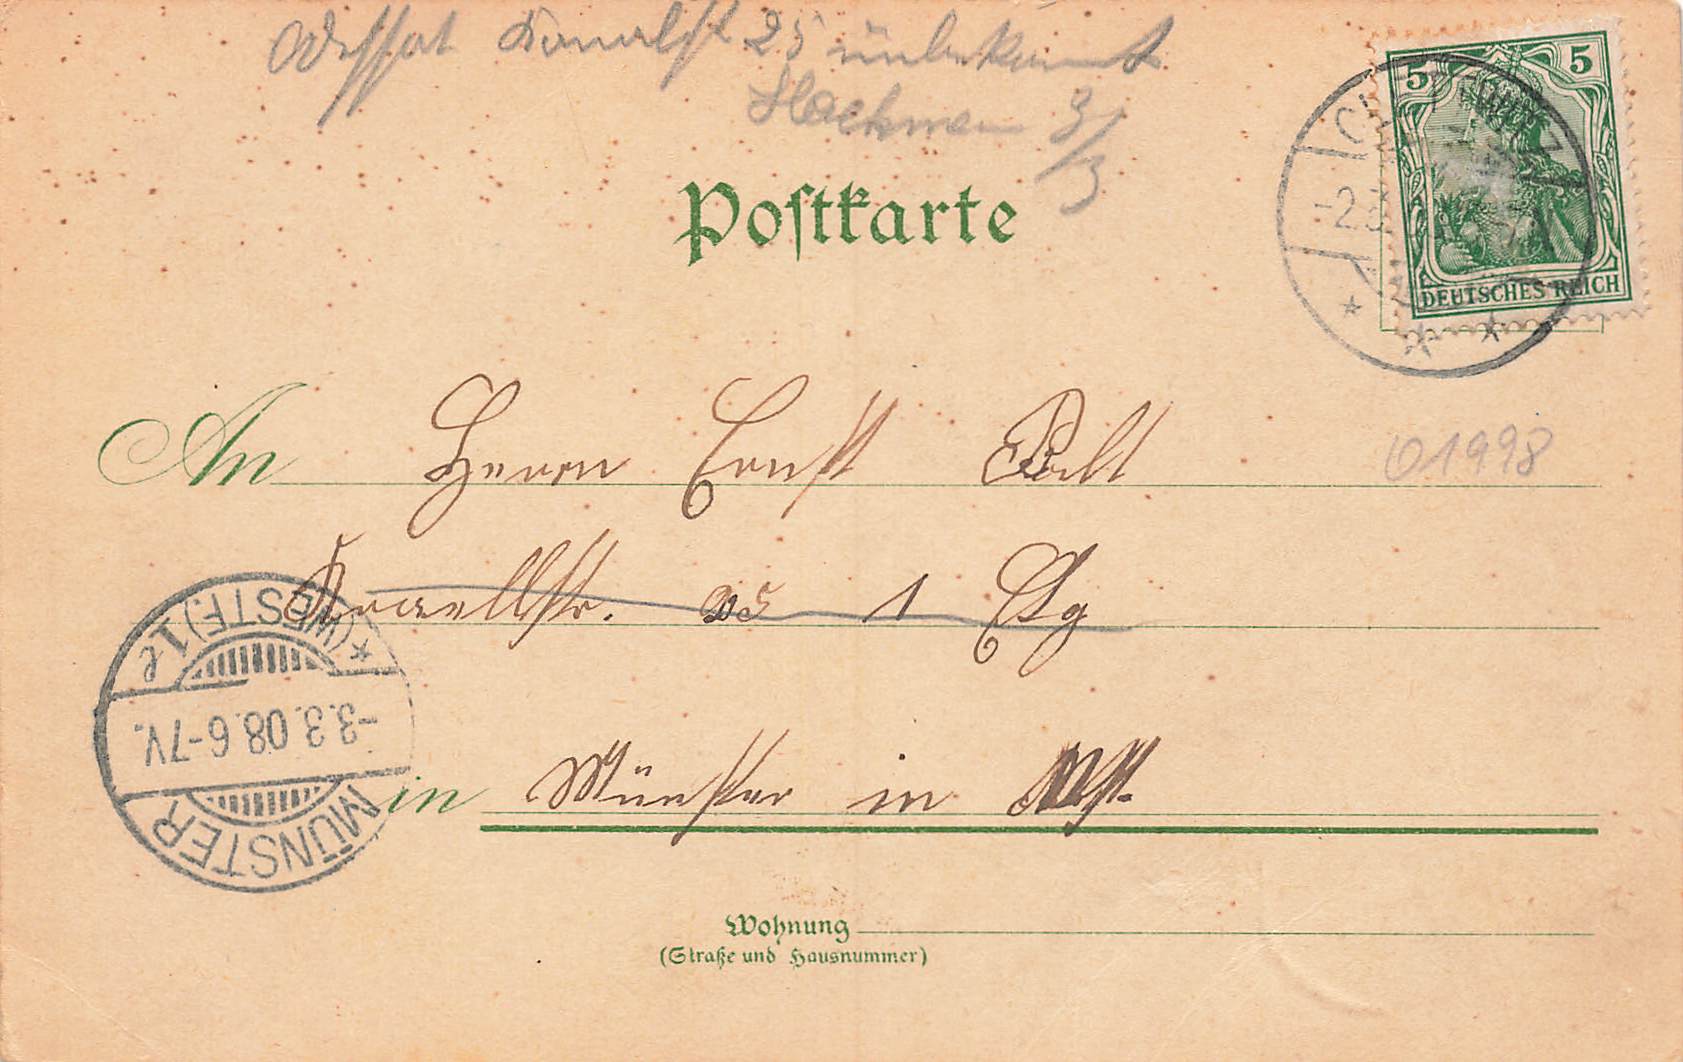 25 unbekannt
Hackman 3/3
Postkarte
5 5
-2.3
DEUTSCHES REICH
An Herrn Ernst
01998
25 1 Etg
* (WESTF.) 1 l
-3.3.08.6-7V.
MÜNSTER
in Münster in Wstf.
Wohnung
(Straße und Hausnummer)